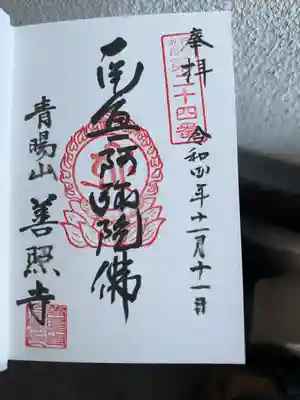 奉拝
二十四番
令和四年十一月十一日
南無阿弥陀佛
青陽山 善照寺